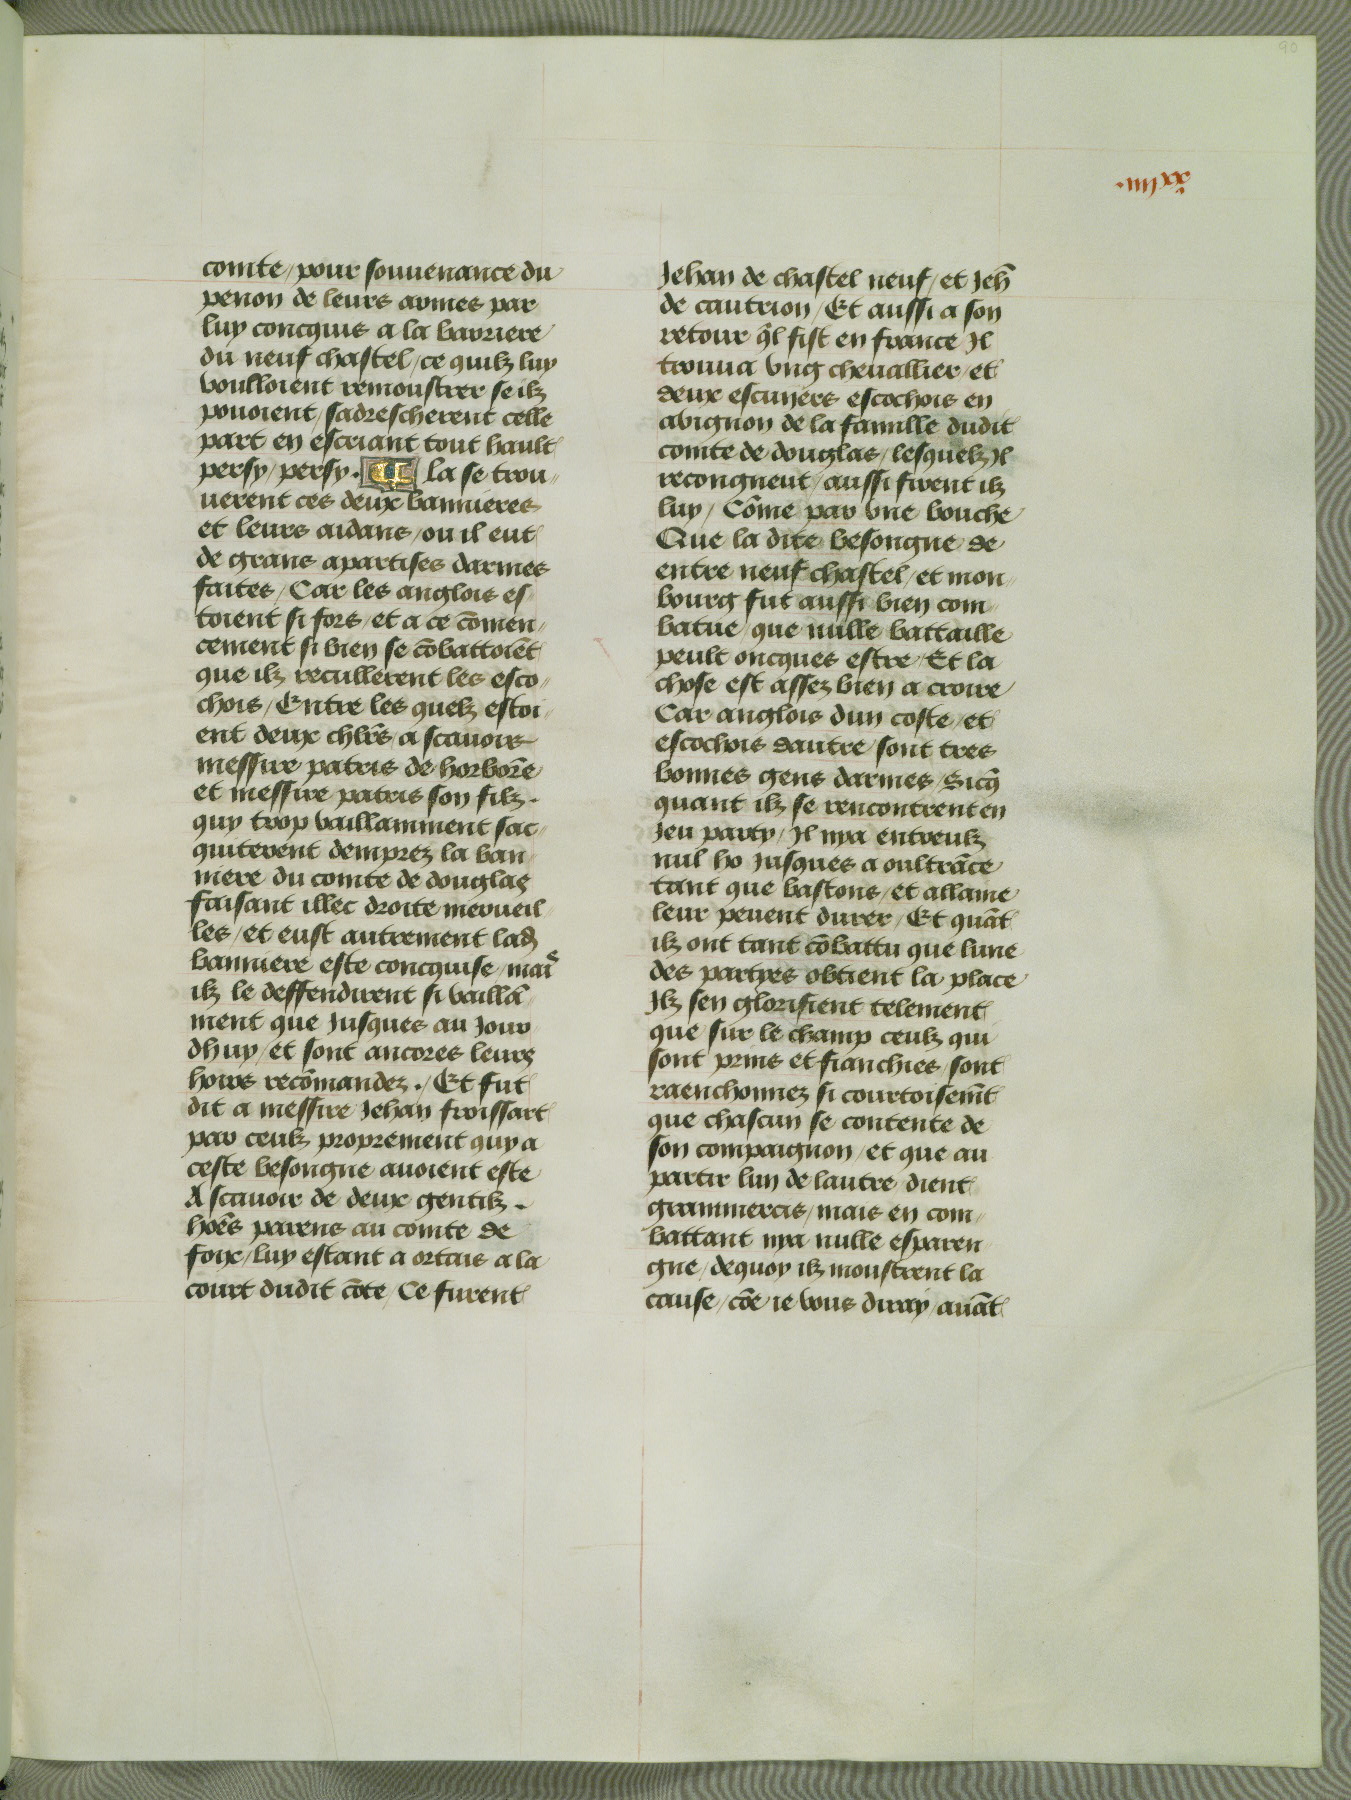 90
iiii xx iiii.
comte / pour souuenance du
penon de leurs armes par
luy concquis a la barriere
du neuf chastel / ce quilz luy
voulloient remoustrer se ilz
pouoient / sadrescherent celle
part en escriant tout hault
persy / persy. Illa se trou¬
uerent ces deux bannieres
et leurs aidans / ou il eut
de grans apartises darmes
faites / Car les anglois es¬
toient si fors / et a ce cōmen¬
cement si bien se cōbattoiēt
que ilz recullerent les esco¬
chois / Entre les quelz estoi¬
ent deux chlr̄s / a scauoir
messire patris de horbor̄e
et messire patris son filz.
quy trop vaillamment sac¬
quiterent demprez la ban¬
niere du comte de douglas
faisant illec droite merueil¬
les / et eust autrement lad̄
banniere este concquise / mais
ilz le deffendirent si vaillā¬
ment que Jusques au Jour
dhuy / et sont ancores leurs
hoirs recōmandez. / Et fut
dit a messire Jehan froissart
par ceulz proprement quy a
ceste besongne auoient este
A scauoir de deux gentilz.
hōēs parens au comte de
foix / luy estant a ortais a la
court dudit cōte / Ce furent
Jehan de chastel neuf / et Jeh̄
de cautrion / Et aussi a son
retour q̄l fist en france Il
trouua vng cheuallier / et
deux escuijers escochois en
avignon de la famille dudit
comte de douglas / lesquelz Il
recongneut / aussi firent ilz
luy / Cōme par vne bouche
Que la dite besongne de
entre neuf chastel / et mon¬
bourg fut aussi bien com¬
batue / que nulle battaille
peult oncques estre / Et la
chose est assez bien a croire
Car anglois dun coste / et
escochois dautre / sont tres
bonnes gens darmes / Sicq̄
quant ilz se rencontrent en
Jeu party / Il nya entreulz
nul ho Jusques a oultrāce
tant que bastons / et allaine
leur peuent durer / Et quāt
ilz ont tant cōbattu que lune
des partyes obtient la place
Ilz sen glorifient telement
que sur le champ ceulz qui
sont prins et fianchies / sont
raenchonnez si courtoisem̄t
que chascun se contente de
son compaignon / et que au
partir lun de lautre dient
grammercis / mais en com¬
battant nya nulle esparen¬
gne / dequoy ilz moustrent la
cause / cōe ie vous diray / auāt